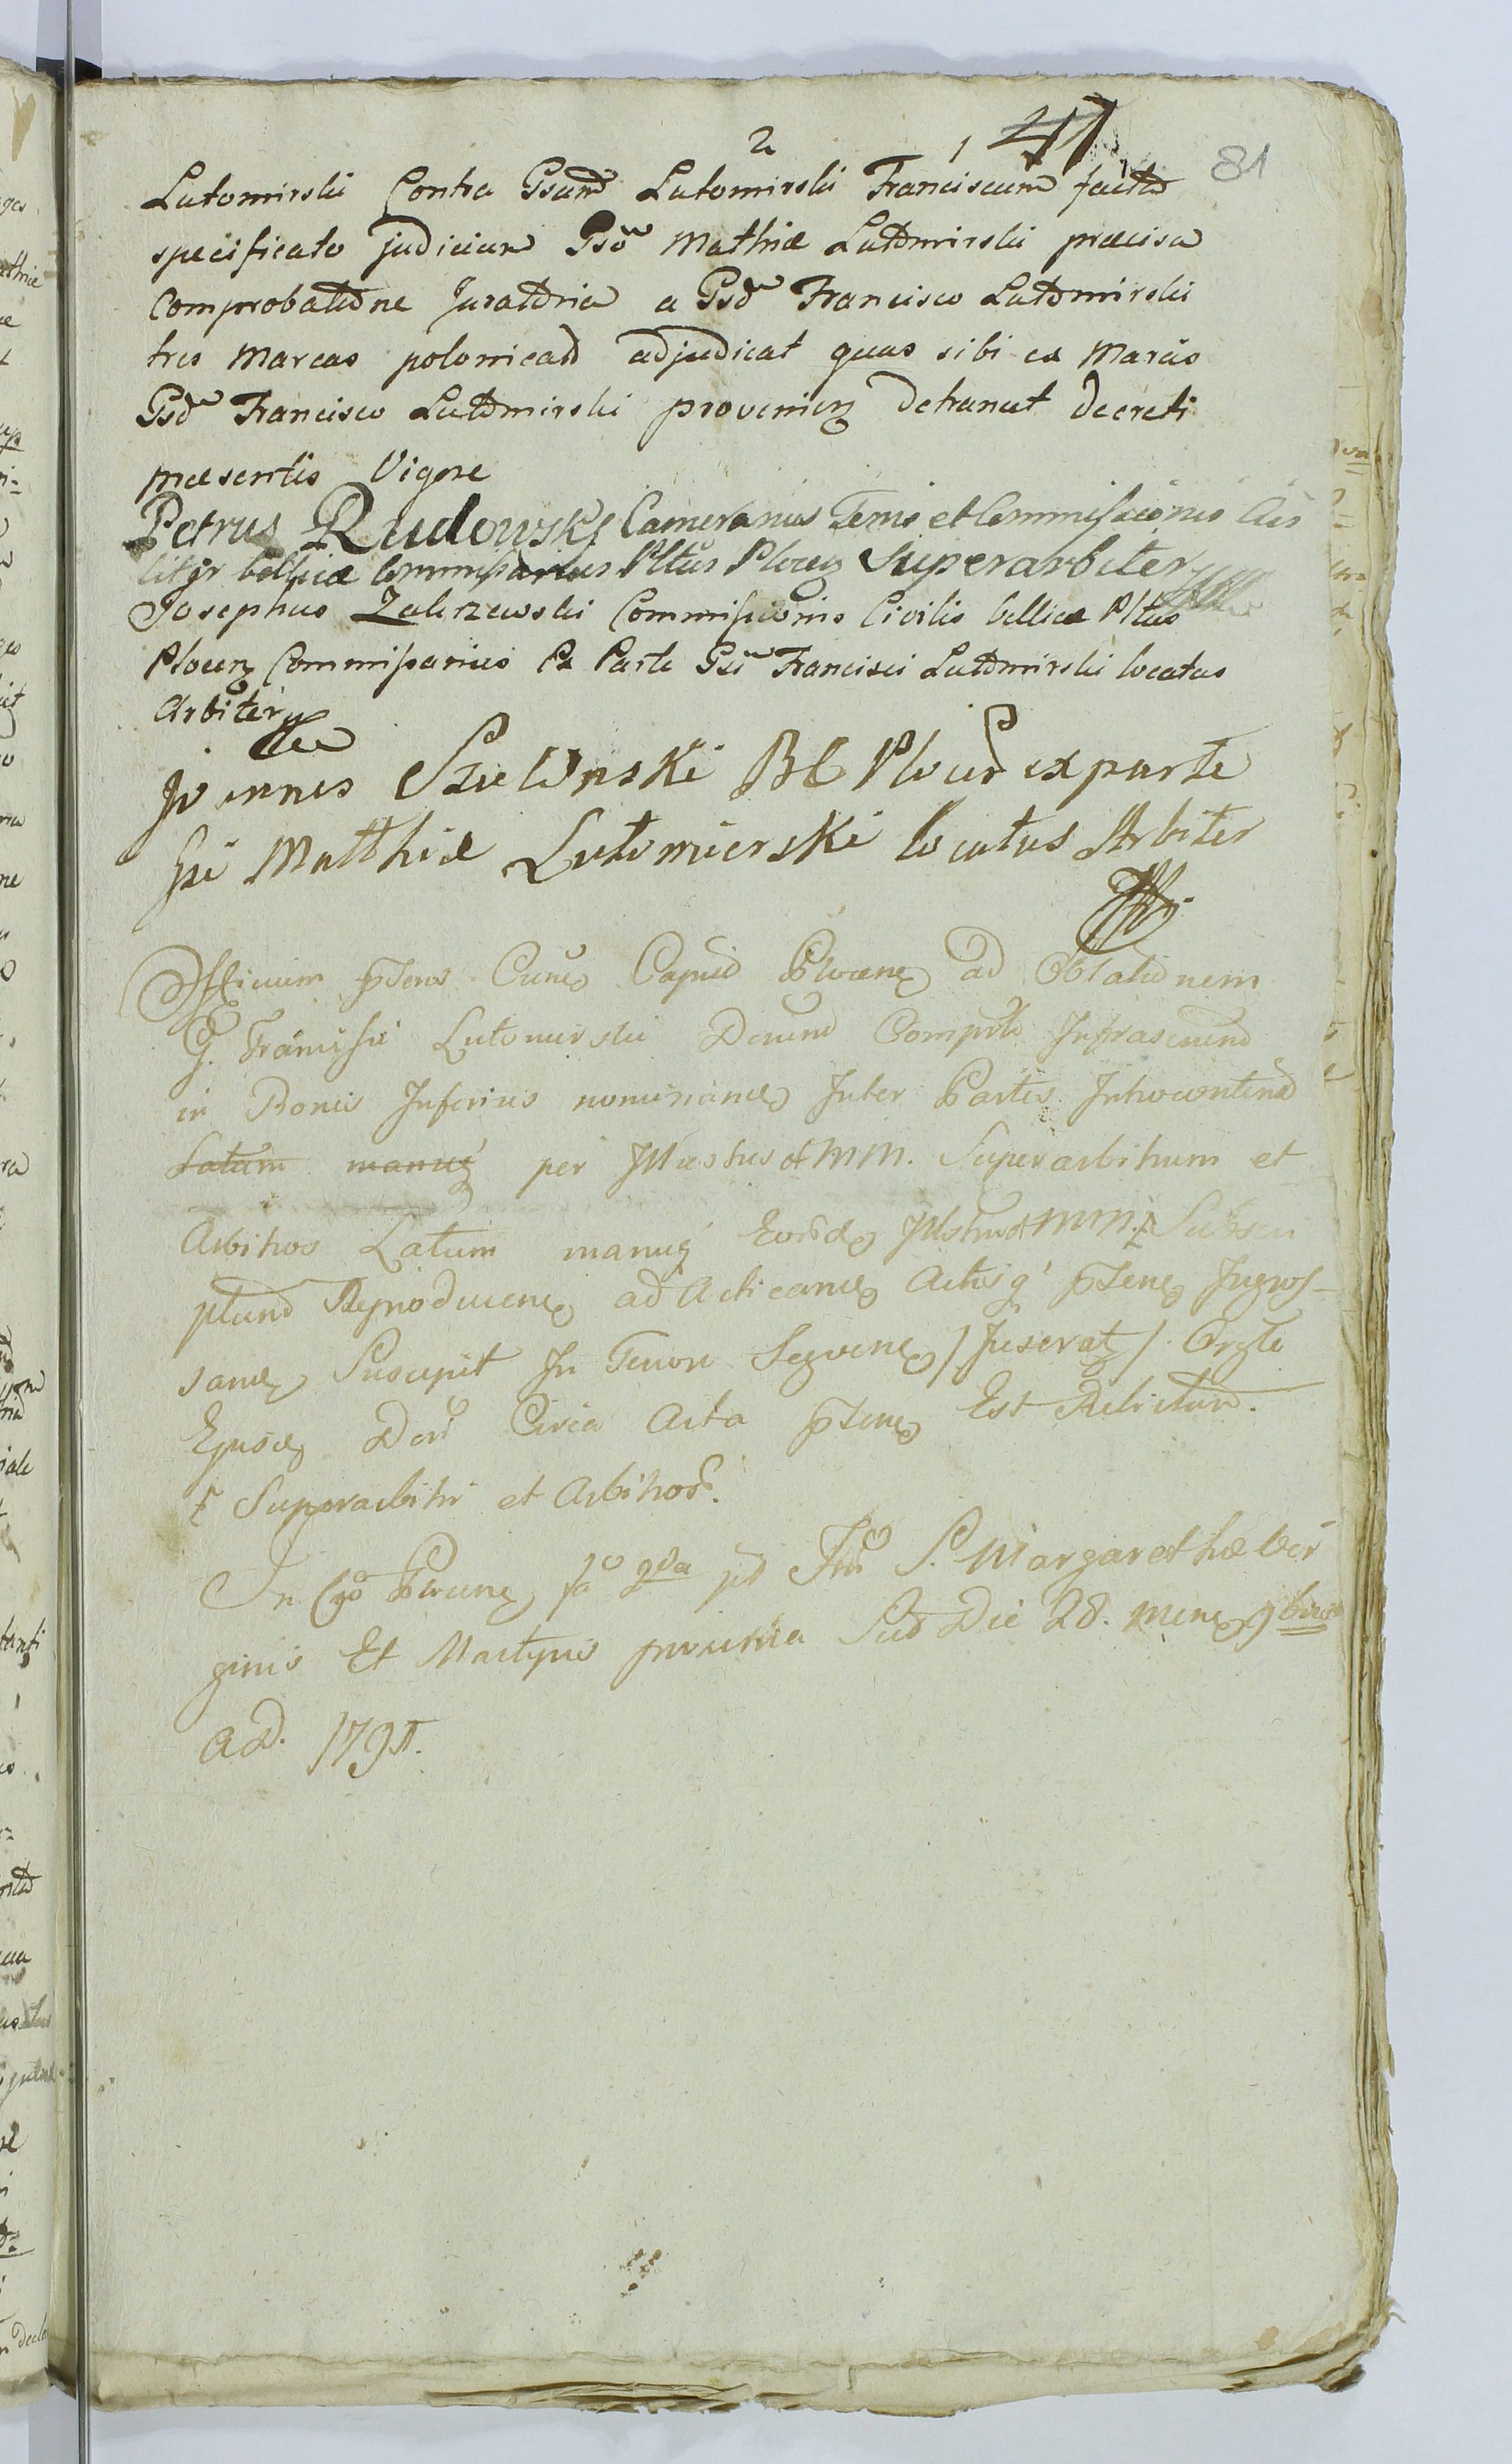 2 1 41 81
Lutomirski Contra Gsum Lutomirski Franciscum facto
specificato judicium Gso Mathiæ Lutomirski præcisa
Comprobatione Juratoria a Gso Francisco Lutomirski
tres Marcas polonicas adjudicat quas sibi ex Marcis
Gso Francisco Lutomirski provenien detrahat Decreti
præsentis Vigore
Petrus Rudowski Camerarius Terris et Commissionis
bellicæ Commissarius Pltus Plocen Superarbiter
Josephus Zakrzewski Commissionis Civilis bellicæ Pltus
Plocen Commissarius Ex Parte Gsi Francisci Lutomirski locatus
Arbiter
Joannes BC Plocen ex parte
Gsi Matthiæ Lutomierski locatus Arbiter
Officium pnens Capnd Plocen ad Oblationem
G. Francisci Lutomirski Decrm Comprti Infrascriend
in Bonis Inferius nominand Inter Partes Introcontend
Latum manuq per Illustres et MM. Superarbitrum et
Arbitros Latum manuq Eord Illstrum et MM. Subscri
ptum Reproducend ad Acticand Actisq pnen Ingros-
sand Suscepit In Tenore Sequen / Inserat / Orgle
Ejusd Decr Circa Acta pnen Est Relictum.
Superarbitri et Arbitror.
In Plocen fa 2da pt Fm S. Margarethæ Vir
ginis Et Martyris proxima Sub Die 28. Mens 9bris
AD. 1791.